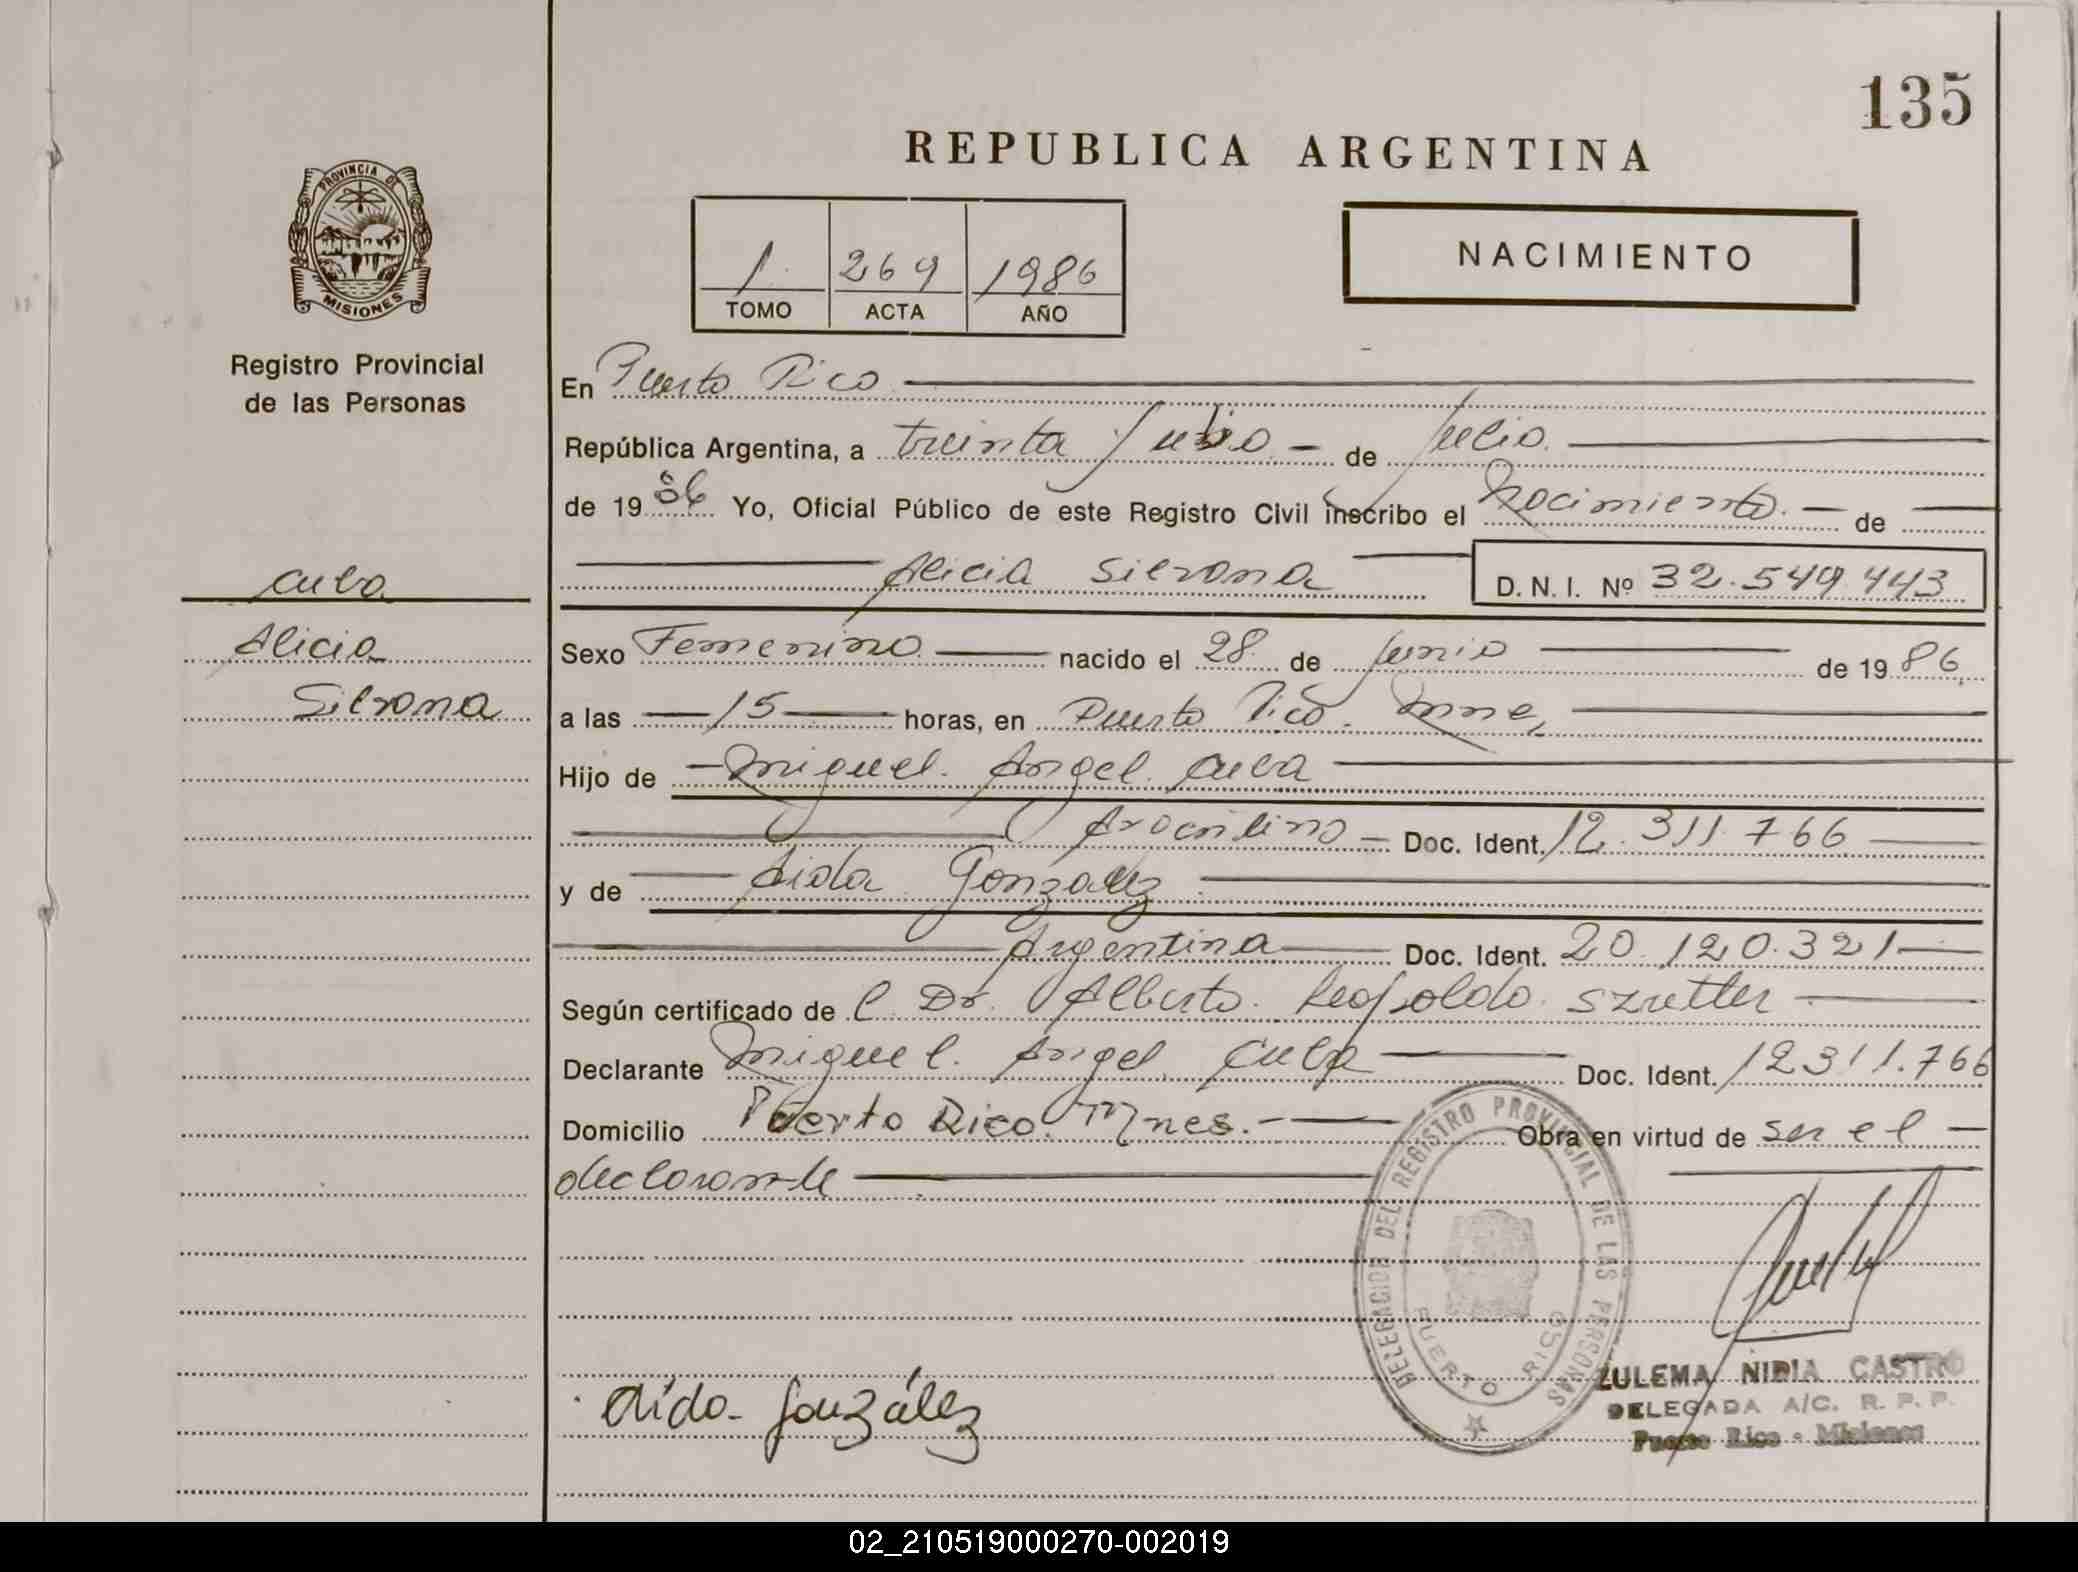 135
REPUBLICA ARGENTINA
PROVINCIA DE
MISIONES
Registro Provincial
de las Personas
1 269 1986
TOMO ACTA AÑO
NACIMIENTO
En Puerto Rico
República Argentina, a treinta Julio - de Julio
de 1986 Yo, Oficial Público de este Registro Civil inscribo el Nacimiento - de
Alicia Silvana D.N.I. Nº 32.549.443
Cuba
Alicia
Silvana
Sexo Femenino nacido el 28 de Junio de 1986
a las 15 horas, en Puerto Rico. Mnes
Hijo de Miguel Angel Cuba
Argentino - Doc. Ident. 12.311.766
y de Aida Gonzalez
Argentina Doc. Ident. 20.120.321
Según certificado de l Dr. Alberto Leopoldo Szretter
Declarante Miguel Angel Cuba Doc. Ident. 12311.766
Domicilio Puerto Rico. Mnes. - Obra en virtud de ser el
declarante
DELEGACION DEL REGISTRO PROVINCIAL DE LAS PERSONAS
PUERTO RICO
ZULEMA NIDIA CASTRO
DELEGADA A/C. R. P. P.
Puerto Rico - Misiones
Aída González
02_210519000270-002019